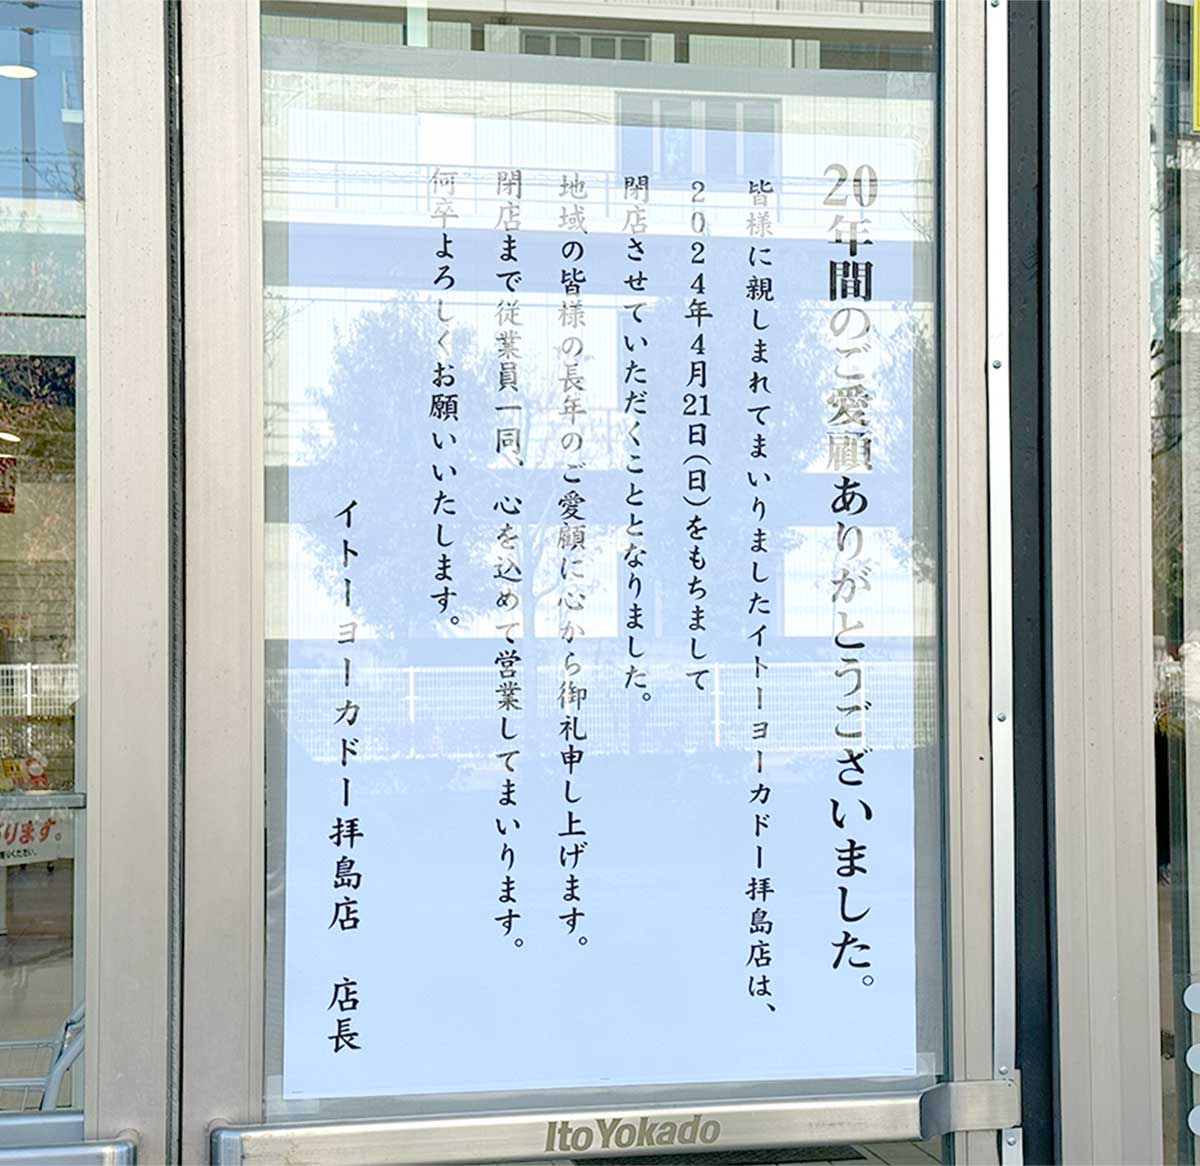 20年間のご愛顧ありがとうございました。
皆様に親しまれてまいりましたイトーヨーカドー拝島店は、
2024年4月21日(日)をもちまして
閉店させていただくこととなりました。
地域の皆様の長年のご愛顧に心から御礼申し上げます。
閉店まで従業員一同、心を込めて営業してまいります。
何卒よろしくお願いいたします。
イトーヨーカドー拝島店 店長
ItoYokado
ります。
ください。